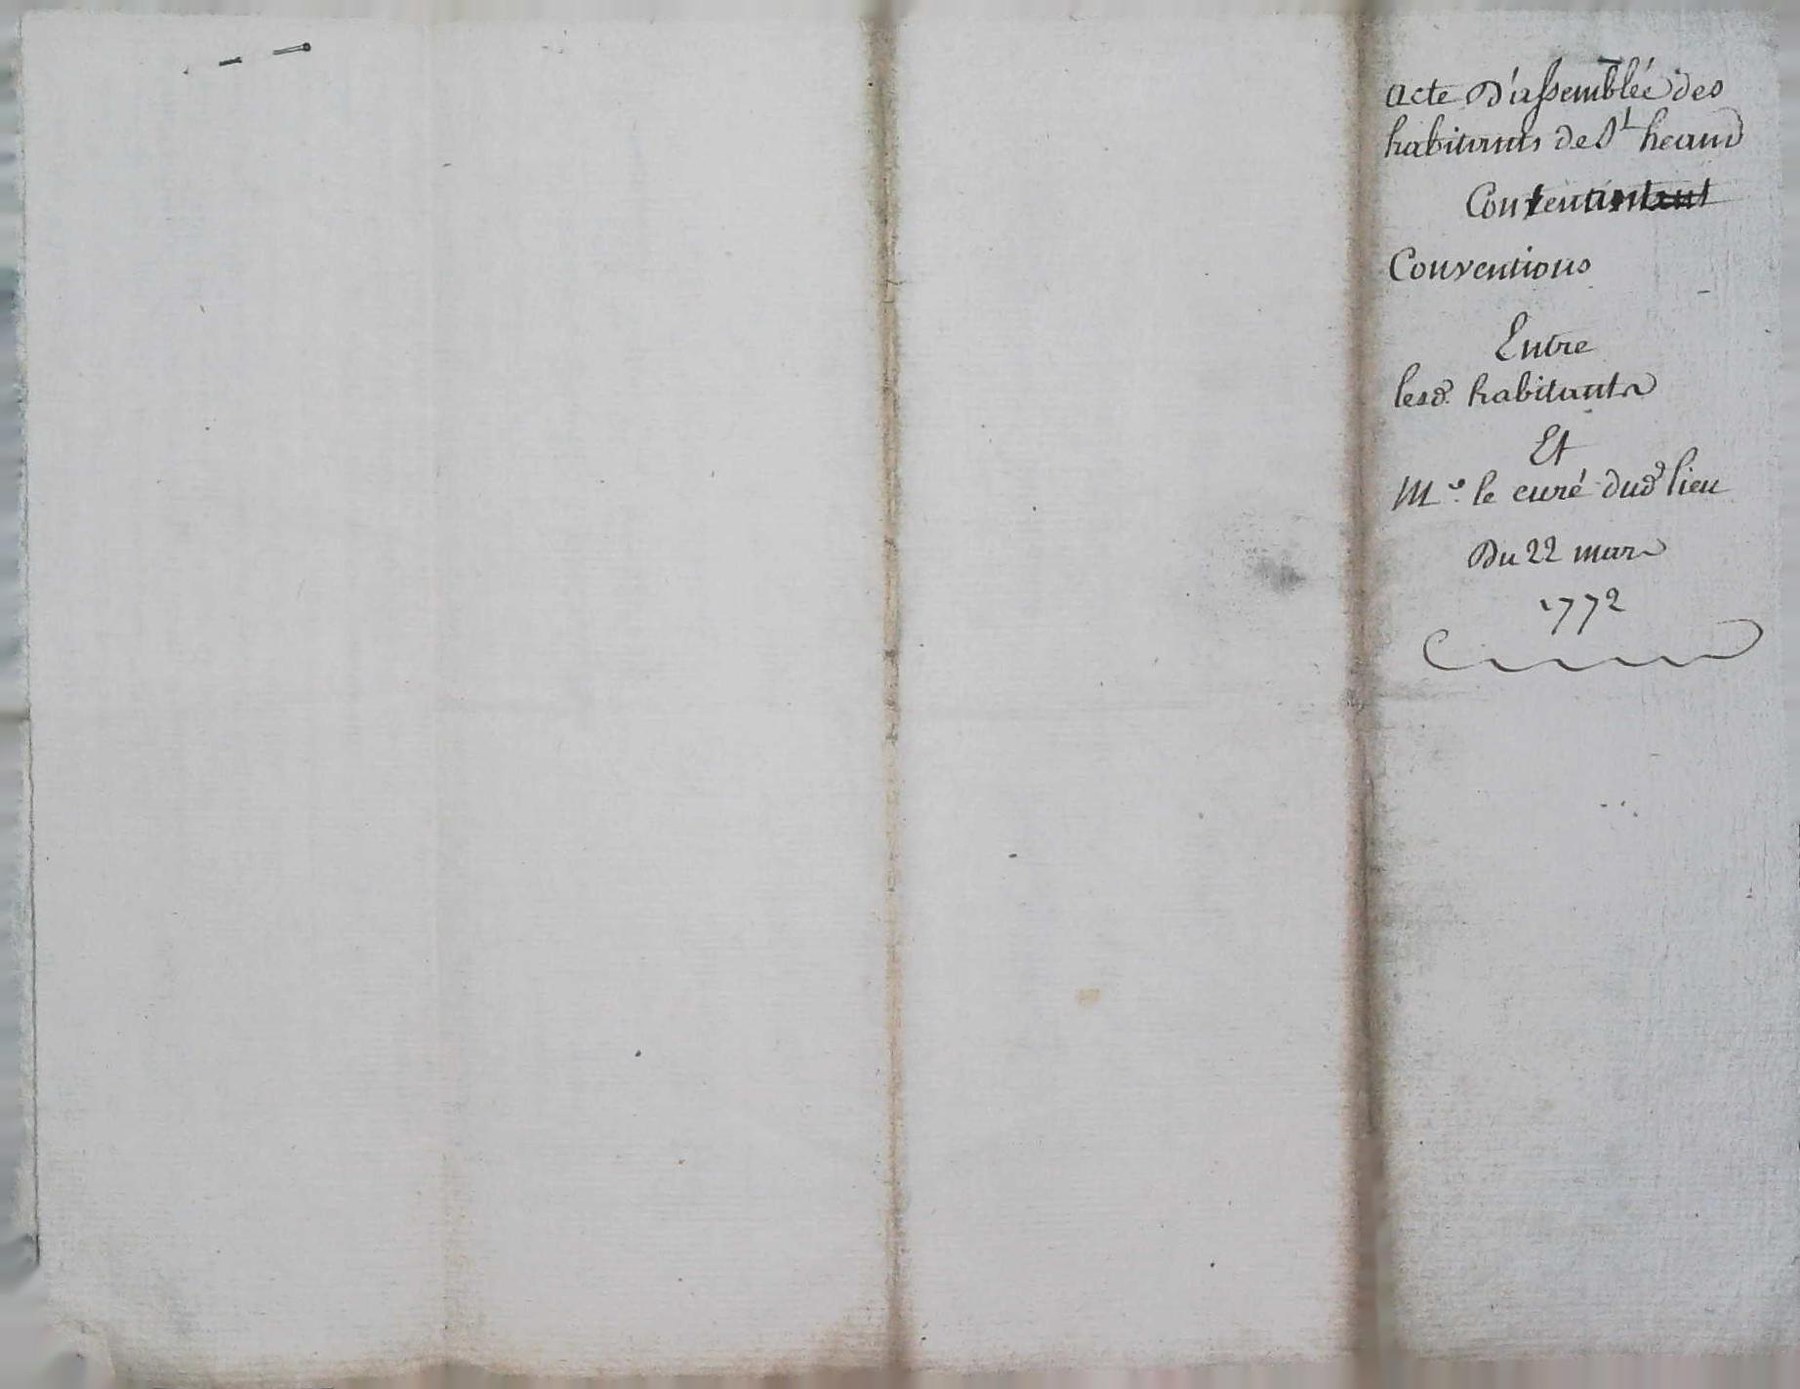 Acte D'assemblée des
habitants de St heand
Conventions
Entre
lesd. habitants
Et
Mre le curé dud lieu
Du 22 mars
1772